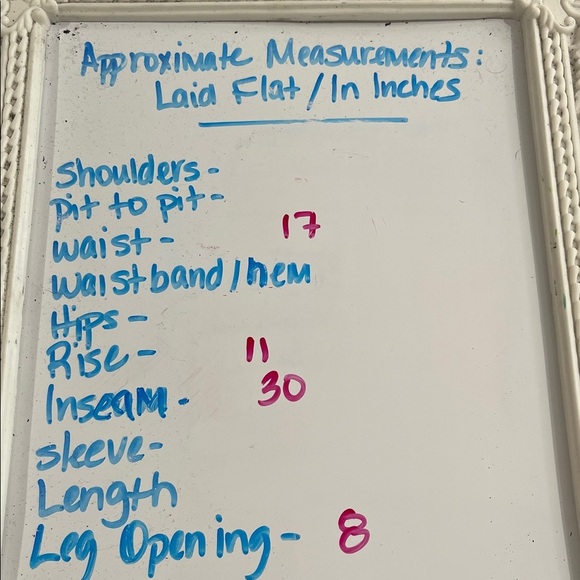 Approximate Measurements:
Laid Flat / In Inches
Shoulders -
pit to pit -
waist - 17
waistband / hem
Hips -
Rise - 11
Inseam - 30
sleeve -
Length
Leg Opening - 8